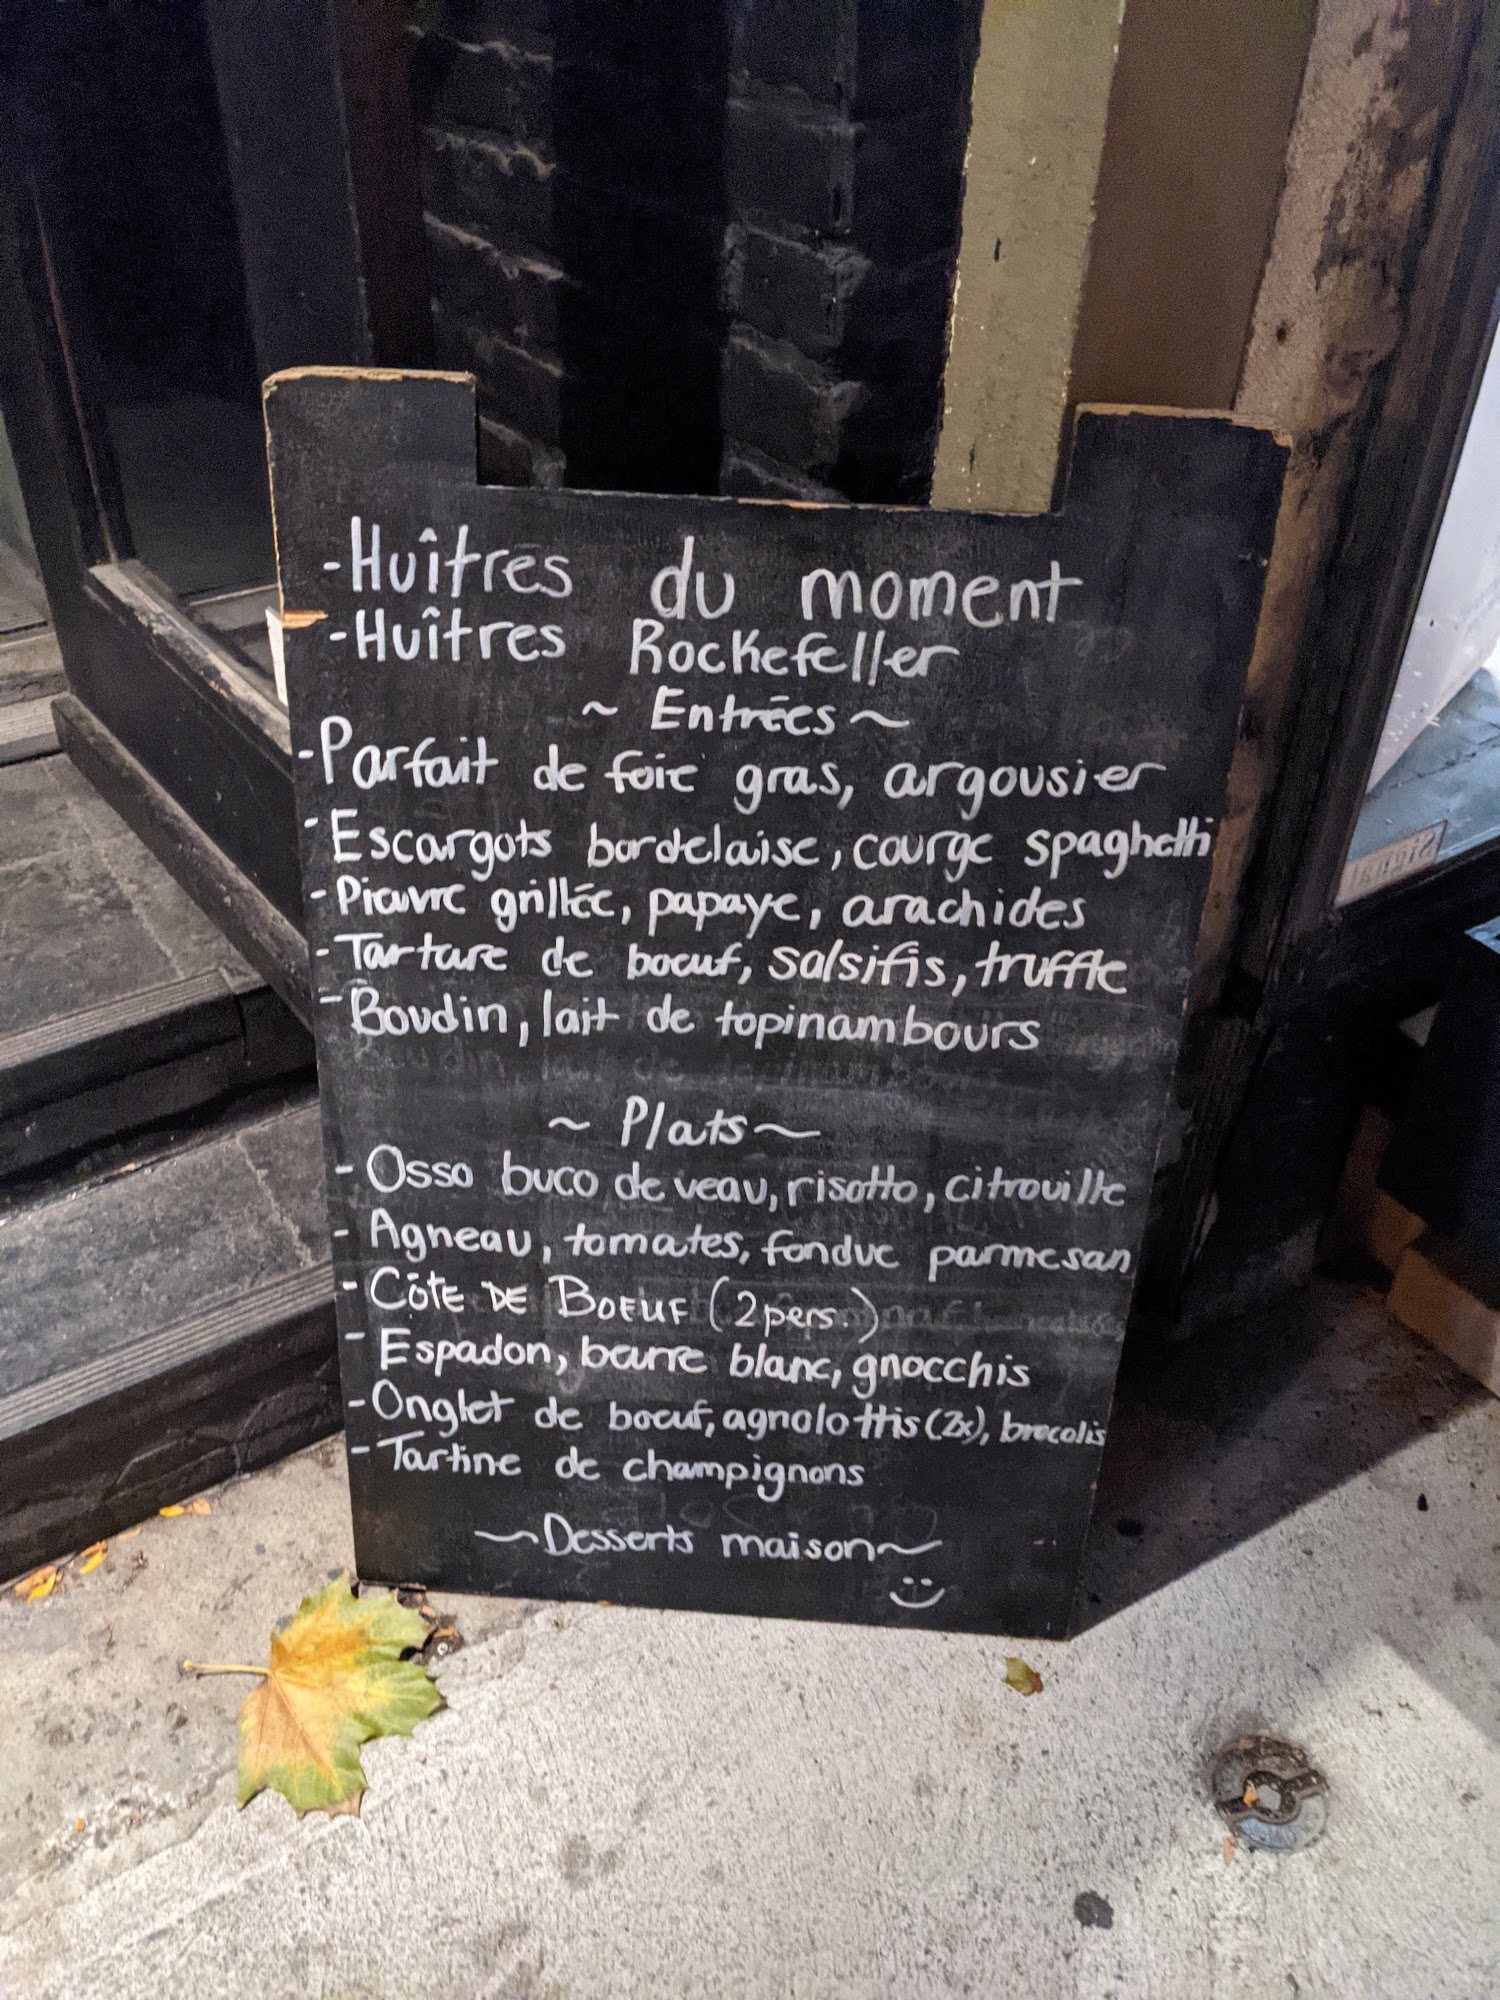 -Huîtres du moment
-Huîtres Rockefeller
~ Entrées ~
-Parfait de foie gras, argousier
-Escargots bordelaise, courge spaghetti
-Pieuvre grillée, papaye, arachides
-Tartare de boeuf, salsifis, truffle
-Boudin, lait de topinambours
~ Plats ~
- Osso buco de veau, risotto, citrouille
- Agneau, tomates, fondue parmesan
- CÔTE DE BOEUF (2 pers.)
- Espadon, beurre blanc, gnocchis
- Onglet de boeuf, agnolottis (2x), brocolis
- Tartine de champignons
~ Desserts maison ~